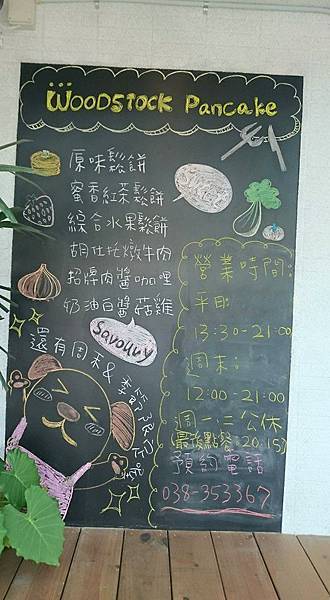 WOODSTOCK Pancake
原味鬆餅
SWEET
蜜香紅茶鬆餅
綜合水果鬆餅
胡仕托燉牛肉
招牌肉醬咖哩
奶油白醬菇雞
Savoury
還有周末&季節限定喔
營業時間:
平日:
13:30-21:00
周末:
12:00-21:00
周一二公休
最後點餐:20:15
預約電話
038-353367